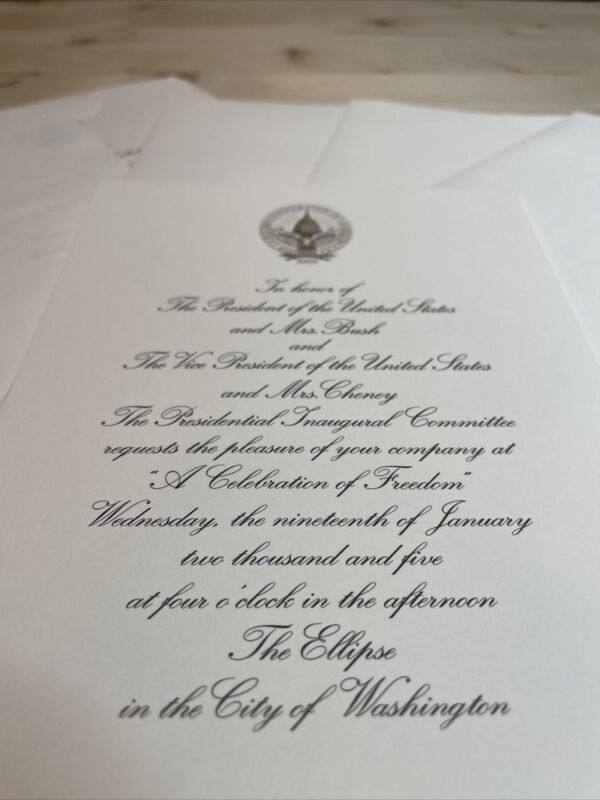 In honor of
The President of the United States
and Mrs. Bush
and
The Vice President of the United States
and Mrs. Cheney
The Presidential Inaugural Committee
requests the pleasure of your company at
“A Celebration of Freedom”
Wednesday, the nineteenth of January
two thousand and five
at four o'clock in the afternoon
The Ellipse
in the City of Washington